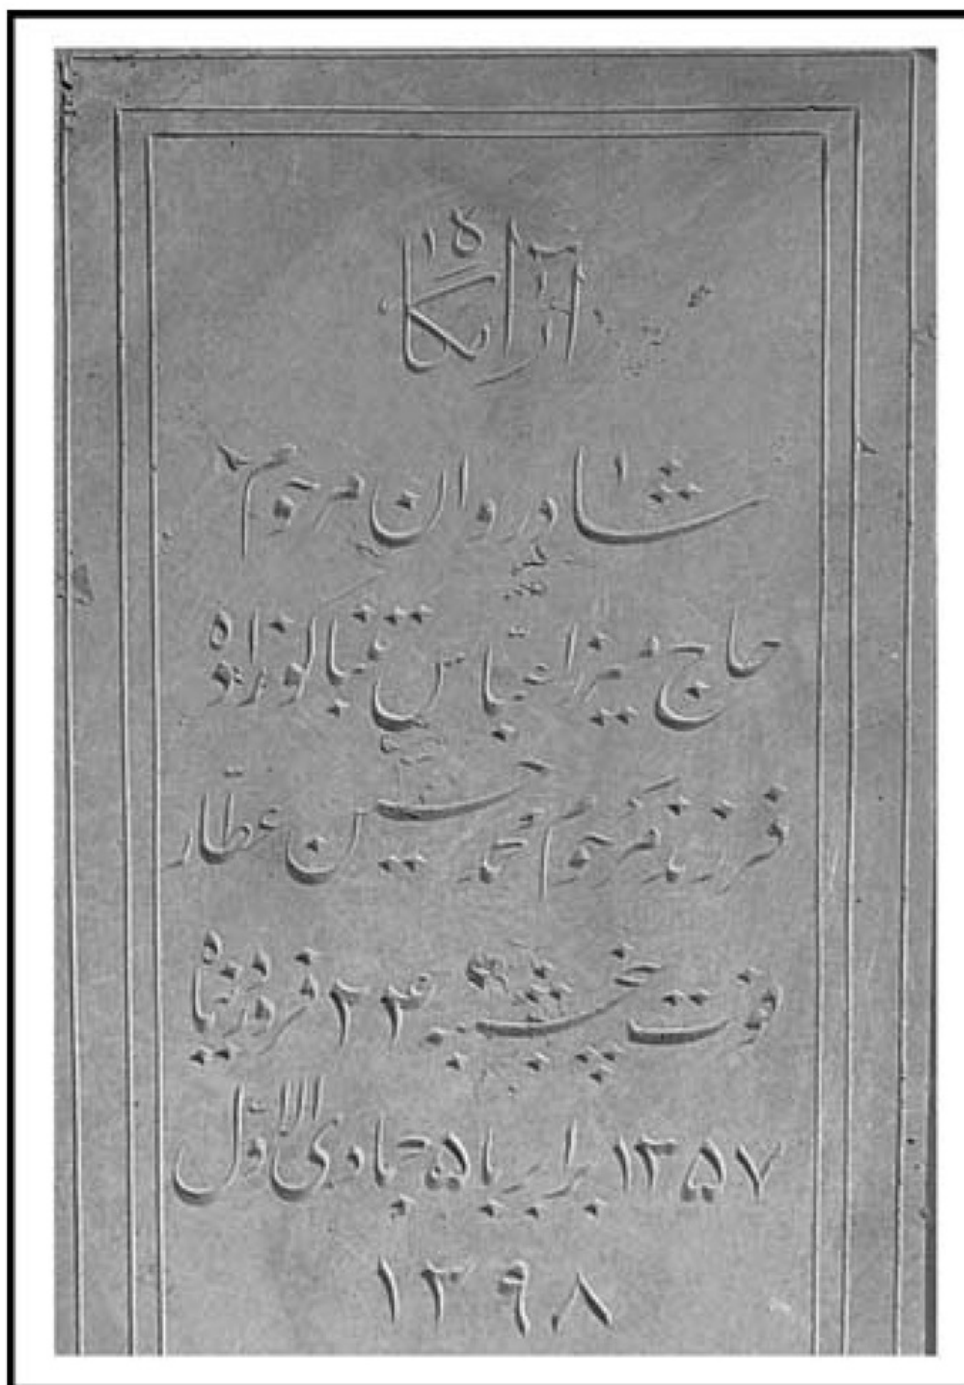 آرامگاه
شادروان مرحوم
حاج میرزا عباس تنباکوزاده
فرزند مرحوم محمد حسین عطّار
فوت پنجشنبه ۲۴ فروردینماه
۱۳۵۷ برابر با ۵ جمادی الاوّل
۱۳۹۸